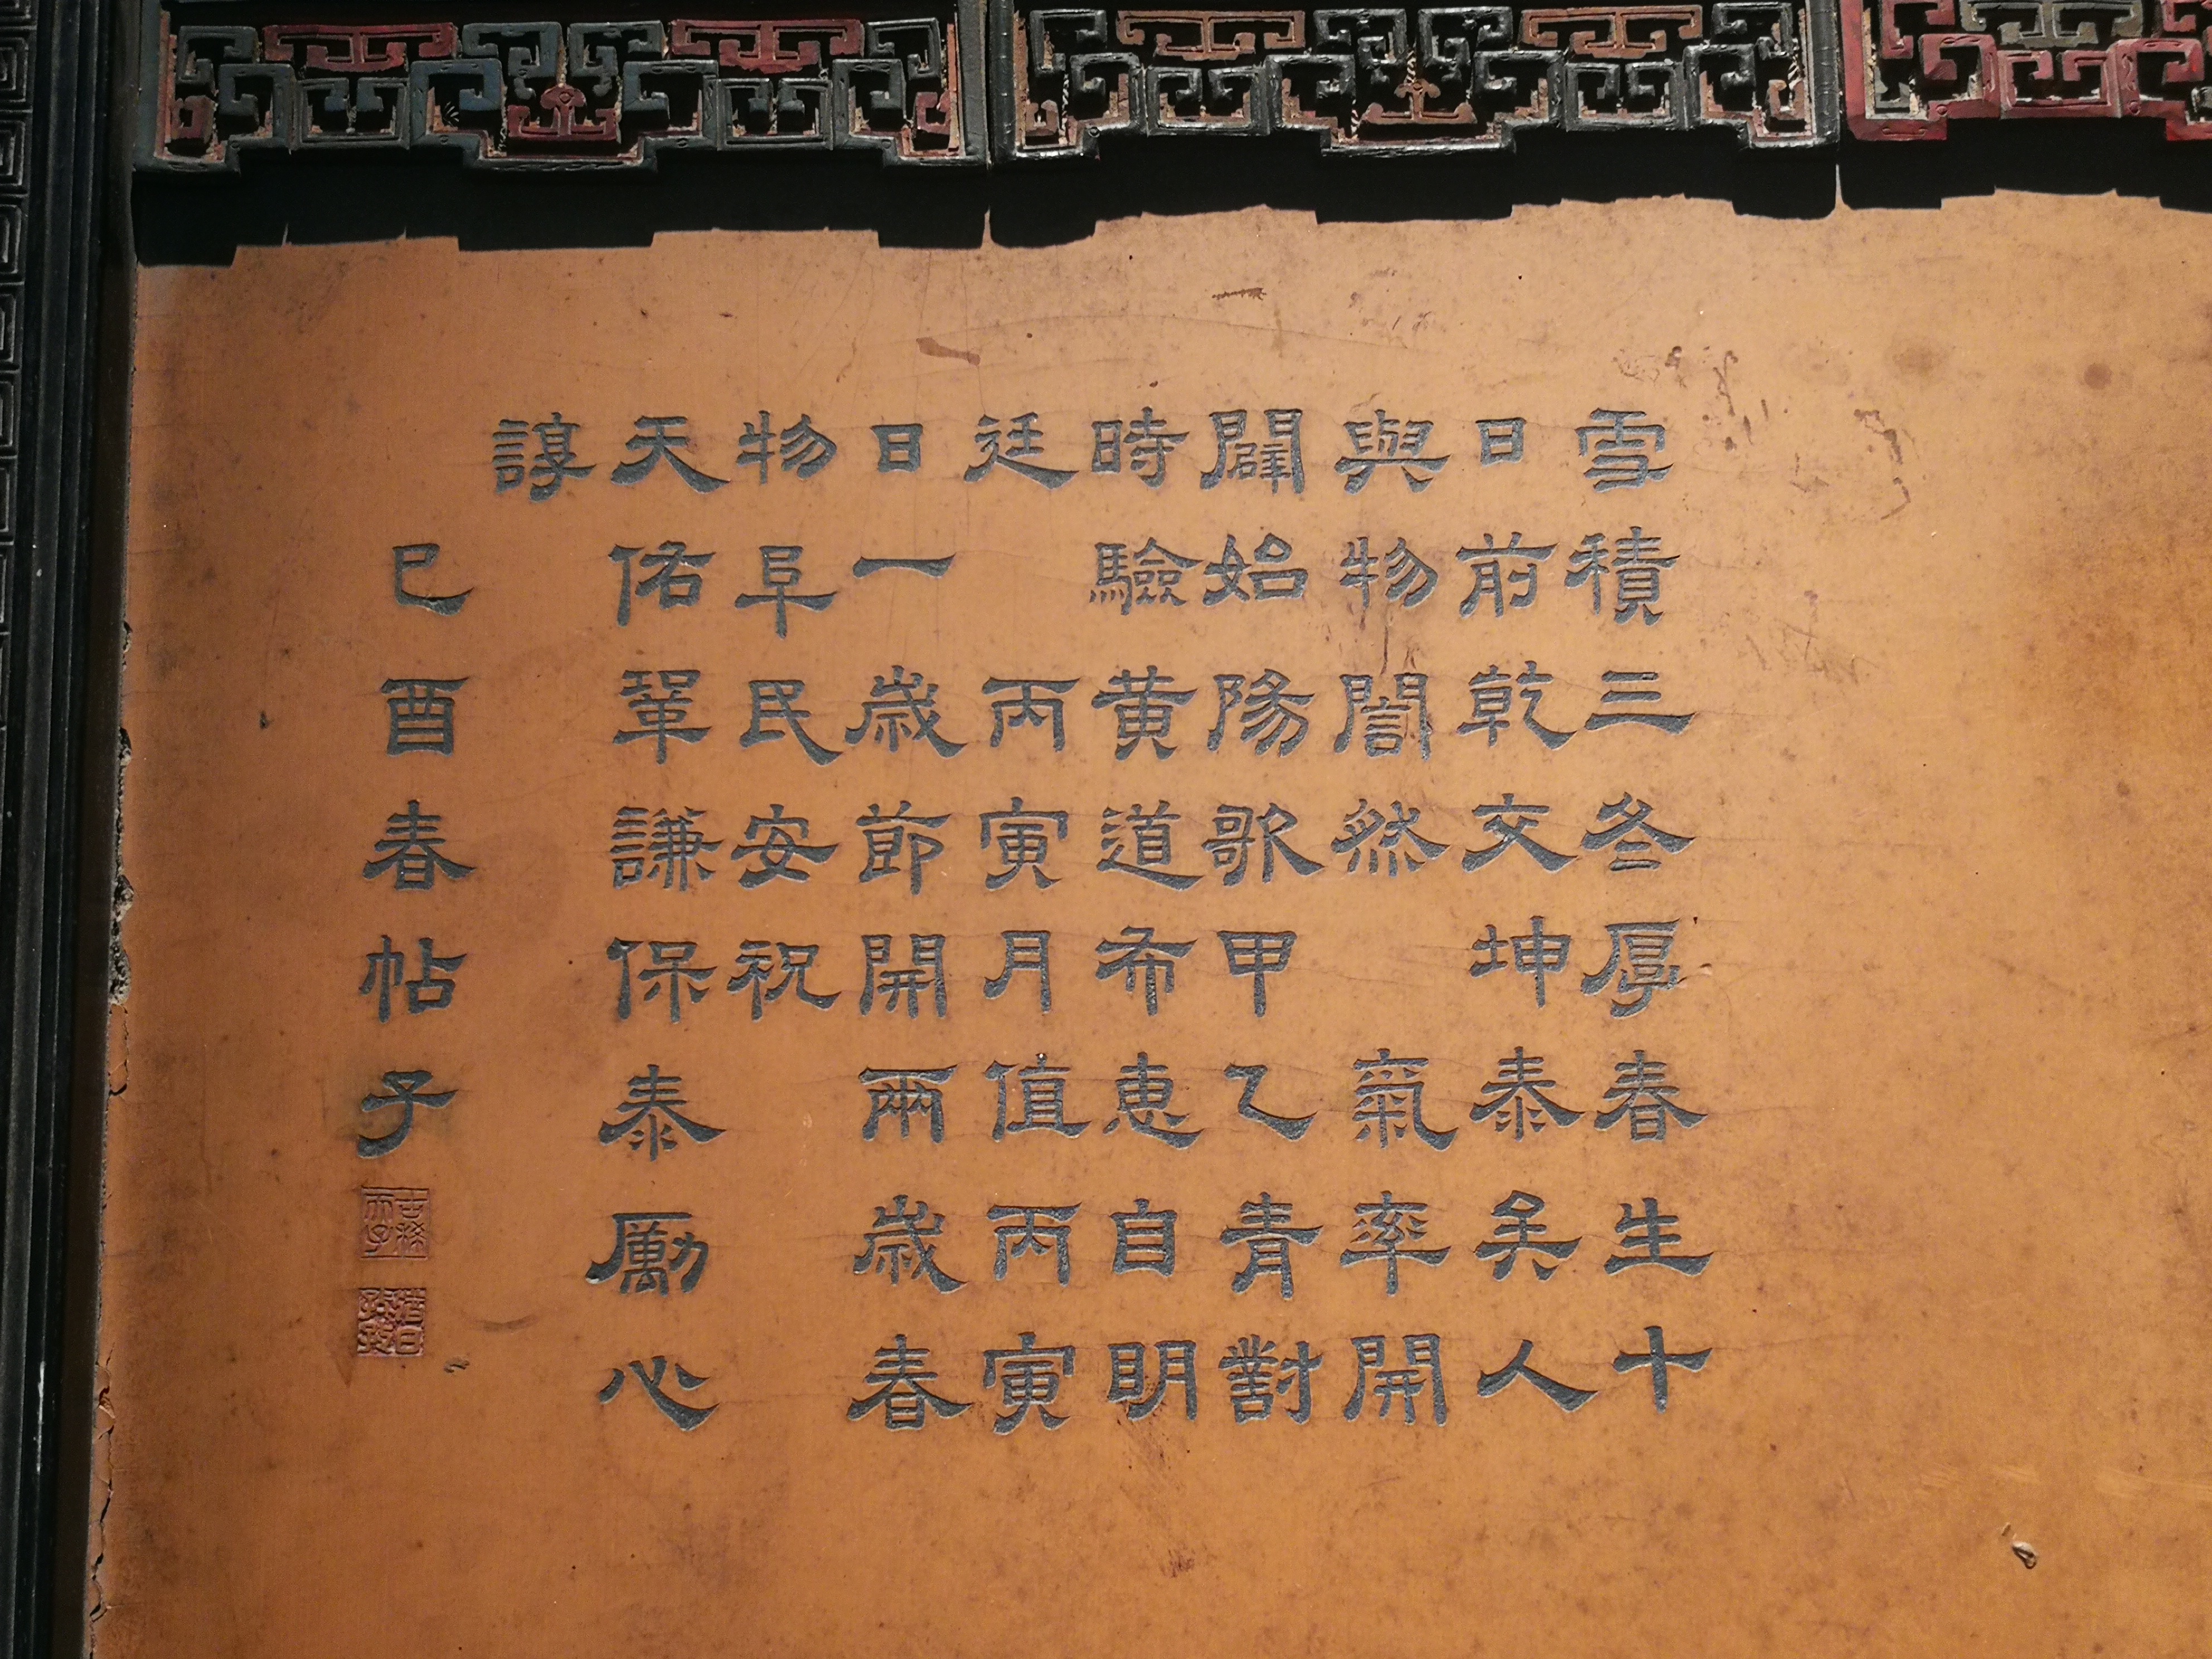 雪積三冬厚春生十
日前乾交坤泰矣人
與物誾然氣率開
闢始陽歌甲乙青對
時驗黄道希恵自明
廷丙寅月值丙寅
日一歳節開兩歳春
物阜民安祝
天佑鞏謙保泰勵心
諄
己酉春帖子
古稀天子
猶日孜孜